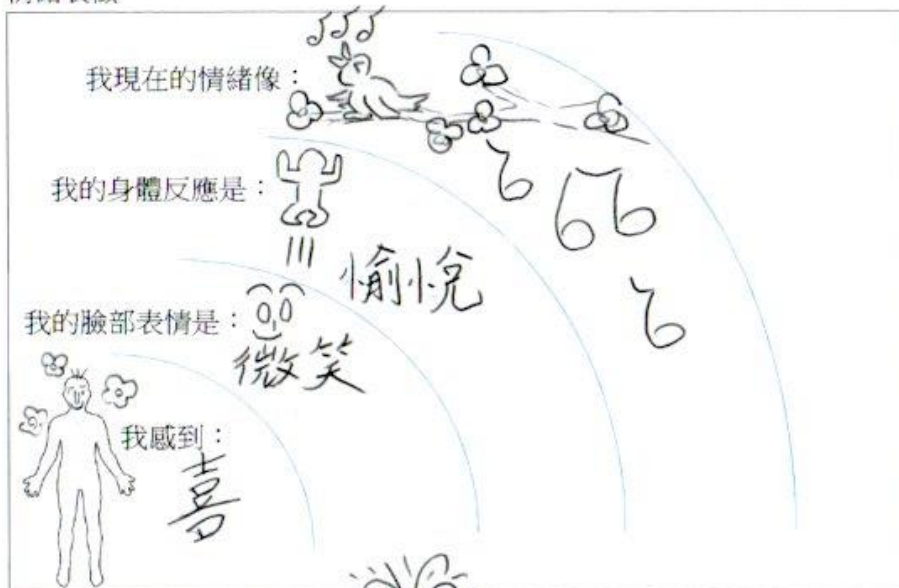 我現在的情緒像：
我的身體反應是：
愉悅
我的臉部表情是：
微笑
我感到：
喜